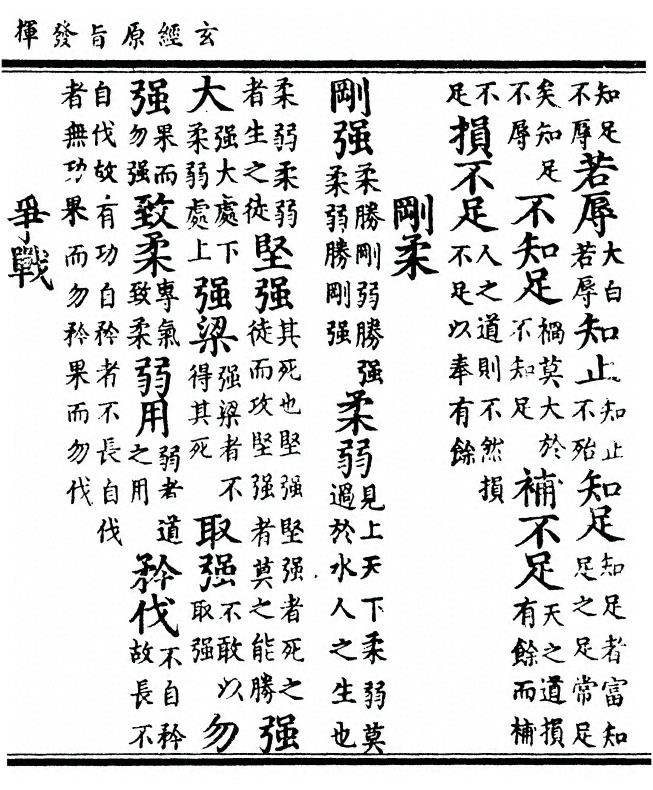 玄經原旨發揮
知足不辱若辱大白若辱知止知止不殆知足知足者富知足之足常足
矣知足不辱不知足禍莫大於不知足補不足天之道損有餘而補
不足損不足人之道則不然損不足以奉有餘
剛柔
剛强柔勝剛弱勝强柔弱勝剛强柔弱見上天下柔弱莫過於水人之生也
柔弱柔弱者生之徒堅强其死也堅强堅强者死之徒而攻堅强者莫之能勝强
大强大處下柔弱處上强梁强梁者不得其死取强不敢以取强勿
强果而勿强致柔專氣致柔弱用弱者道之用矜伐不自矜故長不
自伐故有功自矜者不長自伐者無功果而勿矜果而勿伐
爭戰